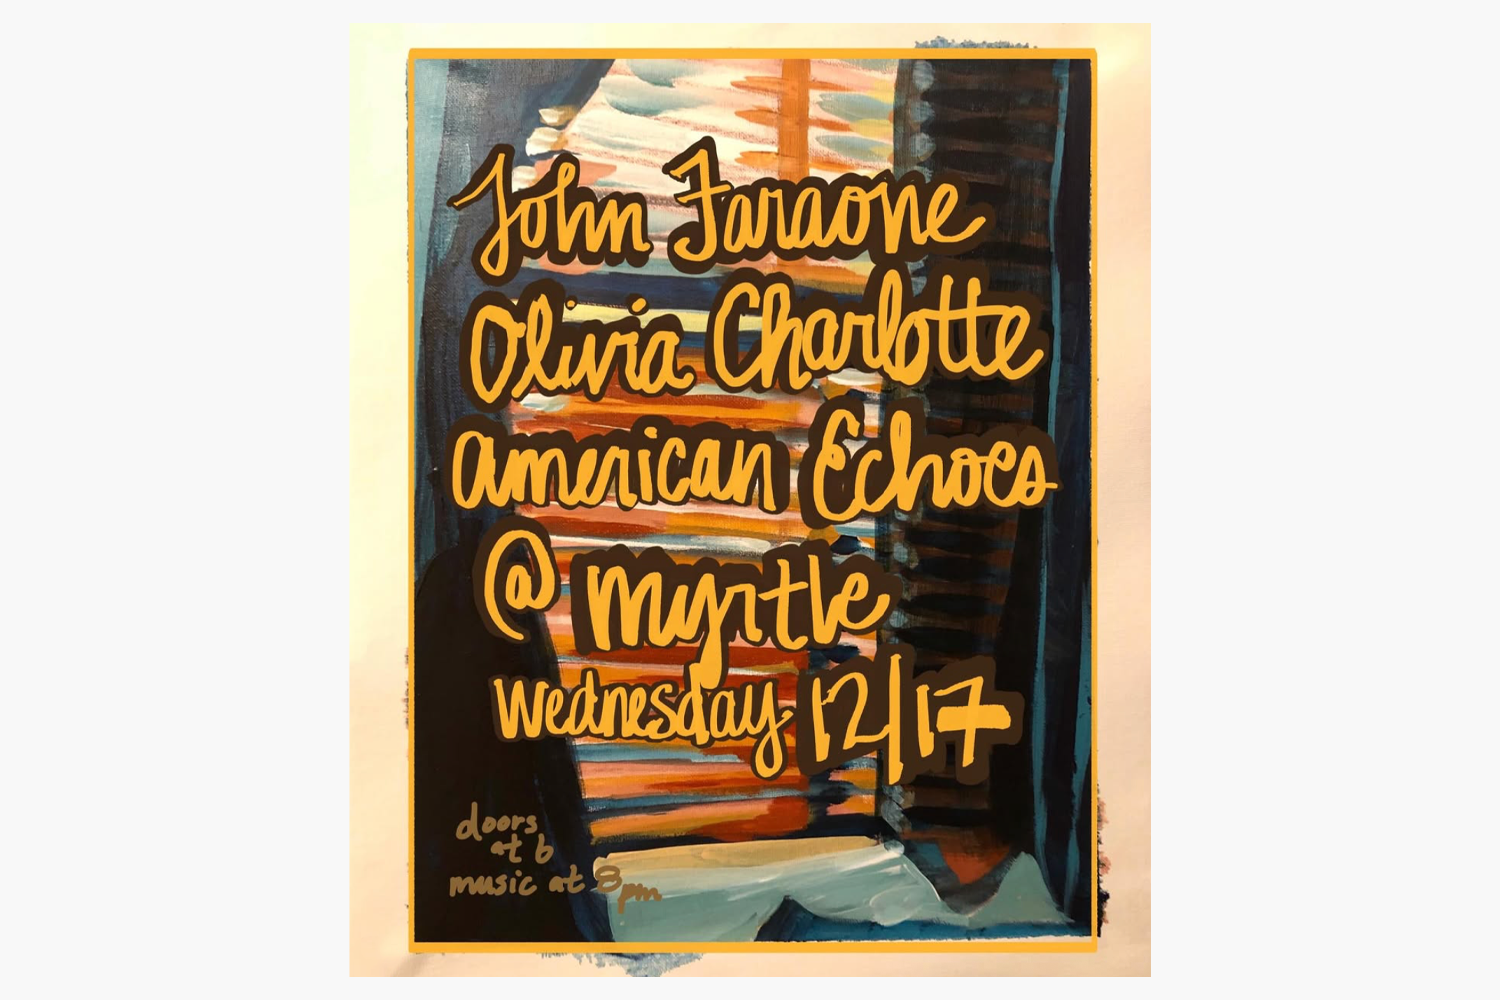 John Faraone
Olivia Charlotte
american Echoes
@ myrtle
wednesday 12/17
doors
at 6
music at 8pm